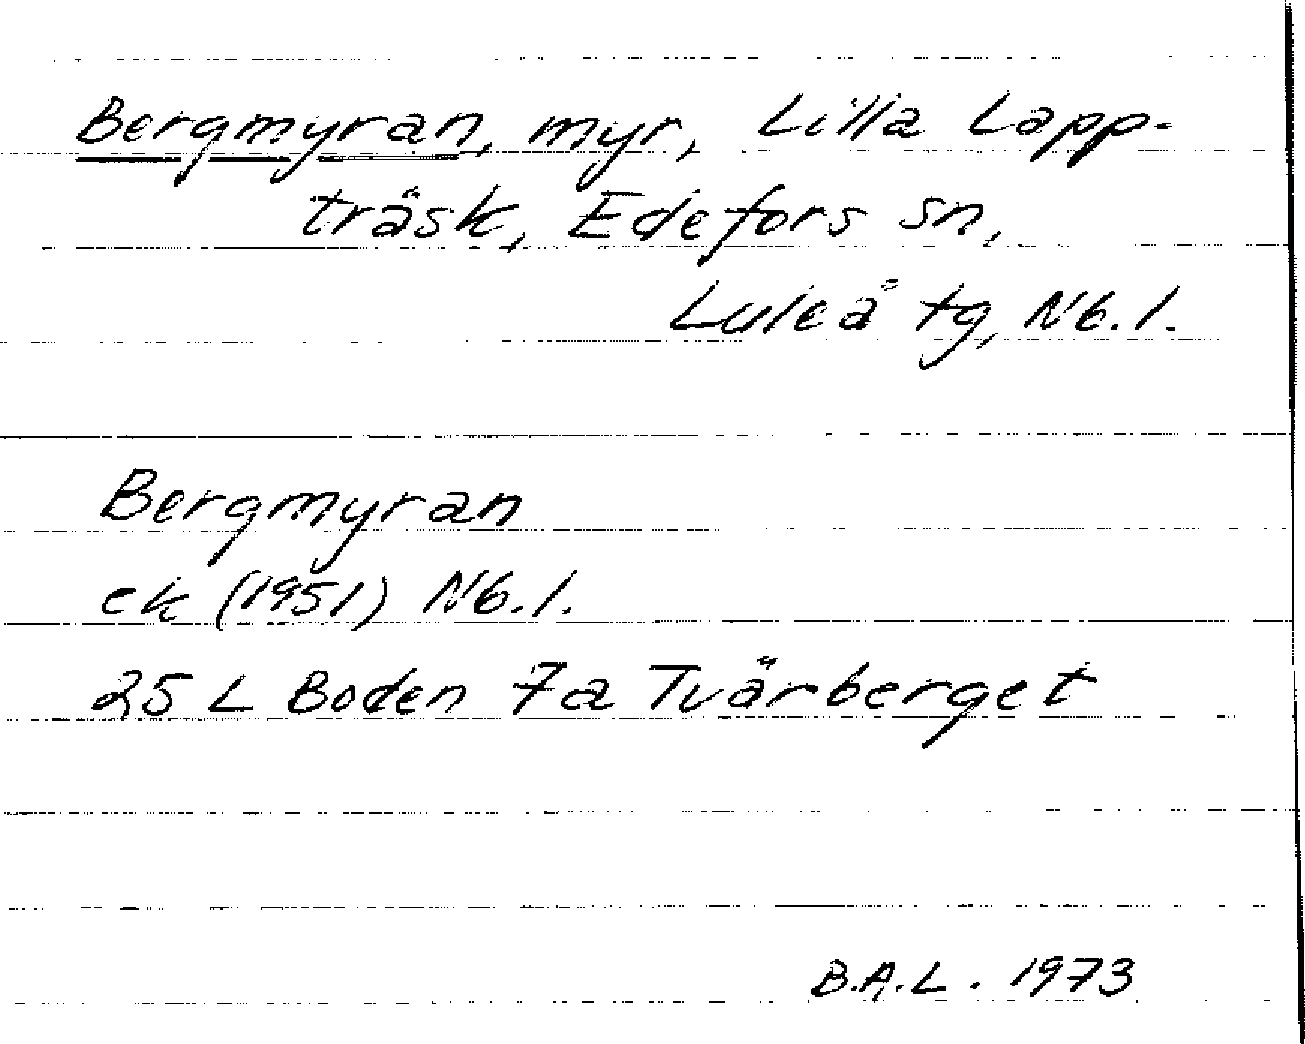 Bergmyran, myr, Lilla Lapp-
träsk, Edefors sn,
Luleå tg, Nb.l.
Bergmyran
ek (1951) Nb.l.
25 L Boden 7a Tvärberget
B.A.L. 1973